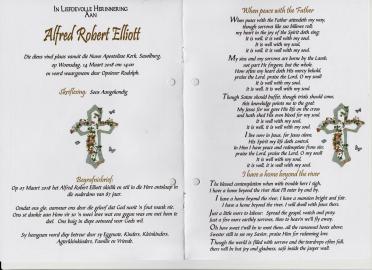 IN LIEFDEVOLLE HERINNERING
AAN
Alfred Robert Elliott
Die diens vind plaas vanuit die Nuwe Apostoliese Kerk, Sasolburg,
op Woensdag, 14 Maart 2018 om
en word waargeneem deur Opsiener Rudolph.
Skriflesing: Soos Aangekondig
Begrafnisbrief:
Op 07 Maart 2018 het Alfred Robert Elliott skielik en stil in die Here ontslaap in
die ouderdom van 87 jaar.
Omdat ons glo, aanvaar ons deur die geloof dat God nooit 'n fout maak nie.
Ons sê dankie aan Hom vir so 'n mooi lewe wat ons gegun was om met hom te
deel. Ons buig in diepe ootmoed voor Gods wil.
Sy heengaan word diep betreur deur sy Eggenote, Kinders, Kleinkinders,
Agterkleinkinders, Familie en Vriende.
When peace with the Father
When peace with the Father attendeth my way,
though sorrows like sea billows roll,
my heart in the joy of the Spirit doth sing:
It is well, it is well with my soul.
It is well with my soul,
it is well, it is well with my soul.
My sins and my sorrows are borne by the Lamb,
not part His forgave, but the whole.
How often my heart doth His mercy behold,
praise the Lord, praise the Lord, O my soul!
It is well with my soul,
it is well, it is well with my soul.
Though Satan should buffet, though trials should come,
this knowledge points me to the goal:
My Jesus for me gave His life on the cross
and hath shed His own blood for my soul.
It is well with my soul,
it is well, it is well with my soul.
I live now in Jesus, for Jesus alone,
His Spirit my life doth control.
In Him I have peace and redemption from sin,
praise the Lord, praise the Lord, O my soul!
It is well with my soul,
it is well, it is well with my soul.
I have a home beyond the river
The blessed contemplation when with trouble here I sigh,
I have a home beyond the river that I'll enter by and by.
I have a home beyond the river, I have a mansion bright and fair.
I have a home beyond the river, I will dwell with Jesus there.
Just a little more to labour: Spread the gospel, watch and pray.
Just a few more earthly sorrows, then to heav'n we'll fly away.
Oh how sweet t'will be to meet them, all the ransomed hosts above;
Sweeter still to see my Savior, praise Him for redeeming love
Though the world is filled with sorrow and the teardrops often fall,
there will be but joy and gladness, safe inside the jasper wall.